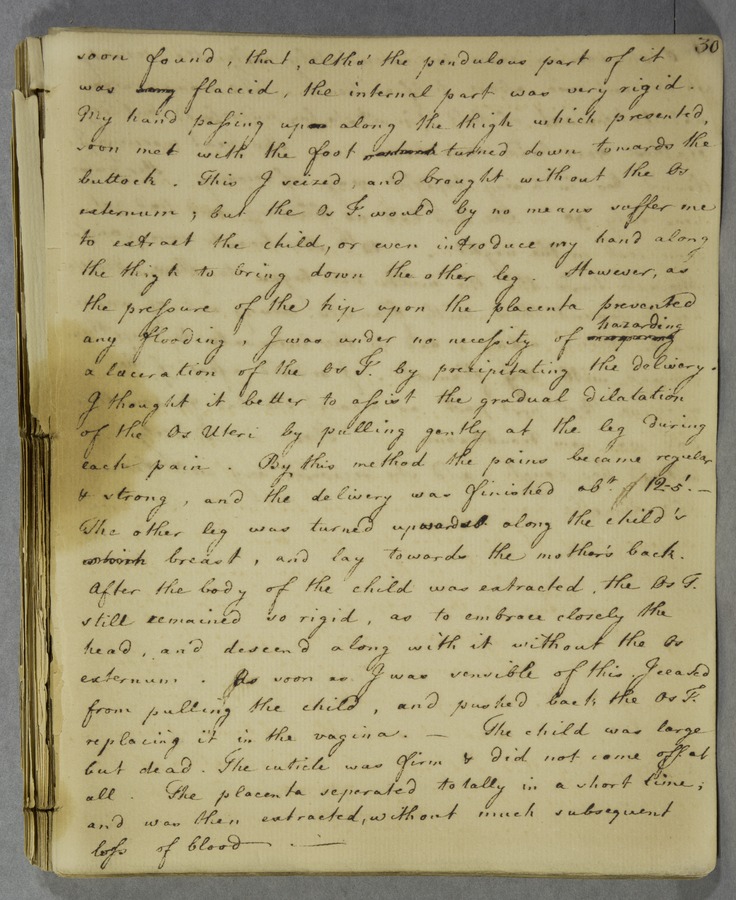 30
soon found, that, altho' the pendulous part of it
was very flaccid, the internal part was very rigid.
My hand passing up along the thigh which presented,
soon met with the foot turned down towards the
buttock. This I seized, and brought without the Os
externum; but the Os T. would by no means suffer me
to extract the child, or even introduce my hand along
the thigh to bring down the other leg. However, as
the pressure of the hip upon the placenta prevented
any flooding, I was under no necessity of hazarding
a laceration of the Os T. by precipitating the delivery.
I thought it better to assist the gradual dilatation
of the Os Uteri by pulling gently at the leg during
each pain. By this method the pains became regular
& strong, and the delivery was finished abt. 12-5'. —
The other leg was turned upwards along the child's
which breast, and lay towards the mother's back.
After the body of the child was extracted, the Os T.
still remained so rigid, as to embrace closely the
head, and descend along with it without the Os
externum. As soon as I was sensible of this I ceased
from pulling the child, and pushed back the Os T.
replacing it in the vagina. — The child was large
but dead. The cuticle was firm & did not come off at
all. The placenta seperated totally in a short time;
and was then extracted, without much subsequent
loss of blood —